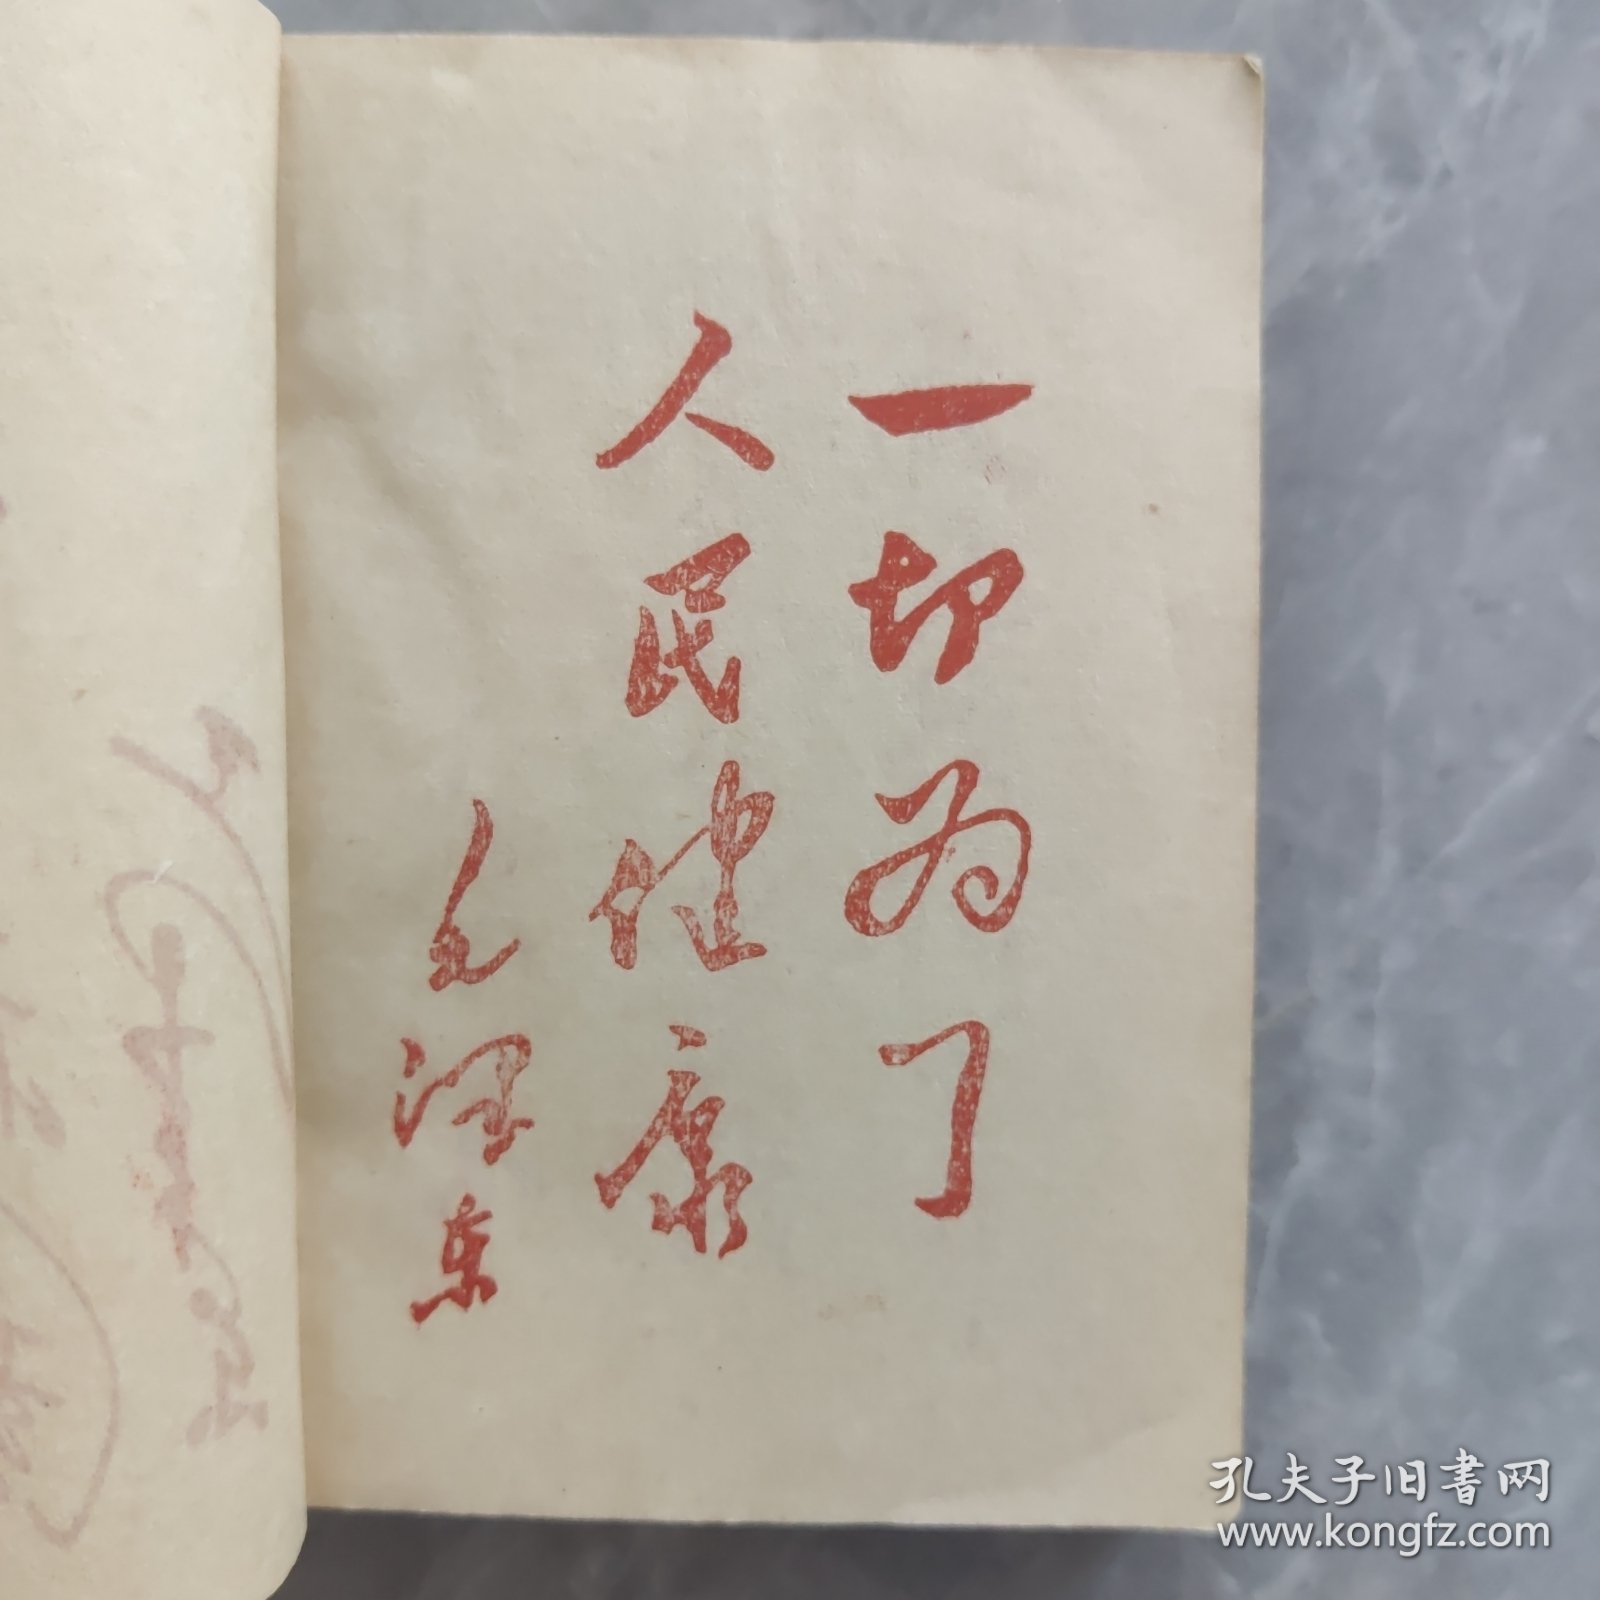 一切为了
人民健康
毛泽东
孔夫子旧书网
www.kongfz.com